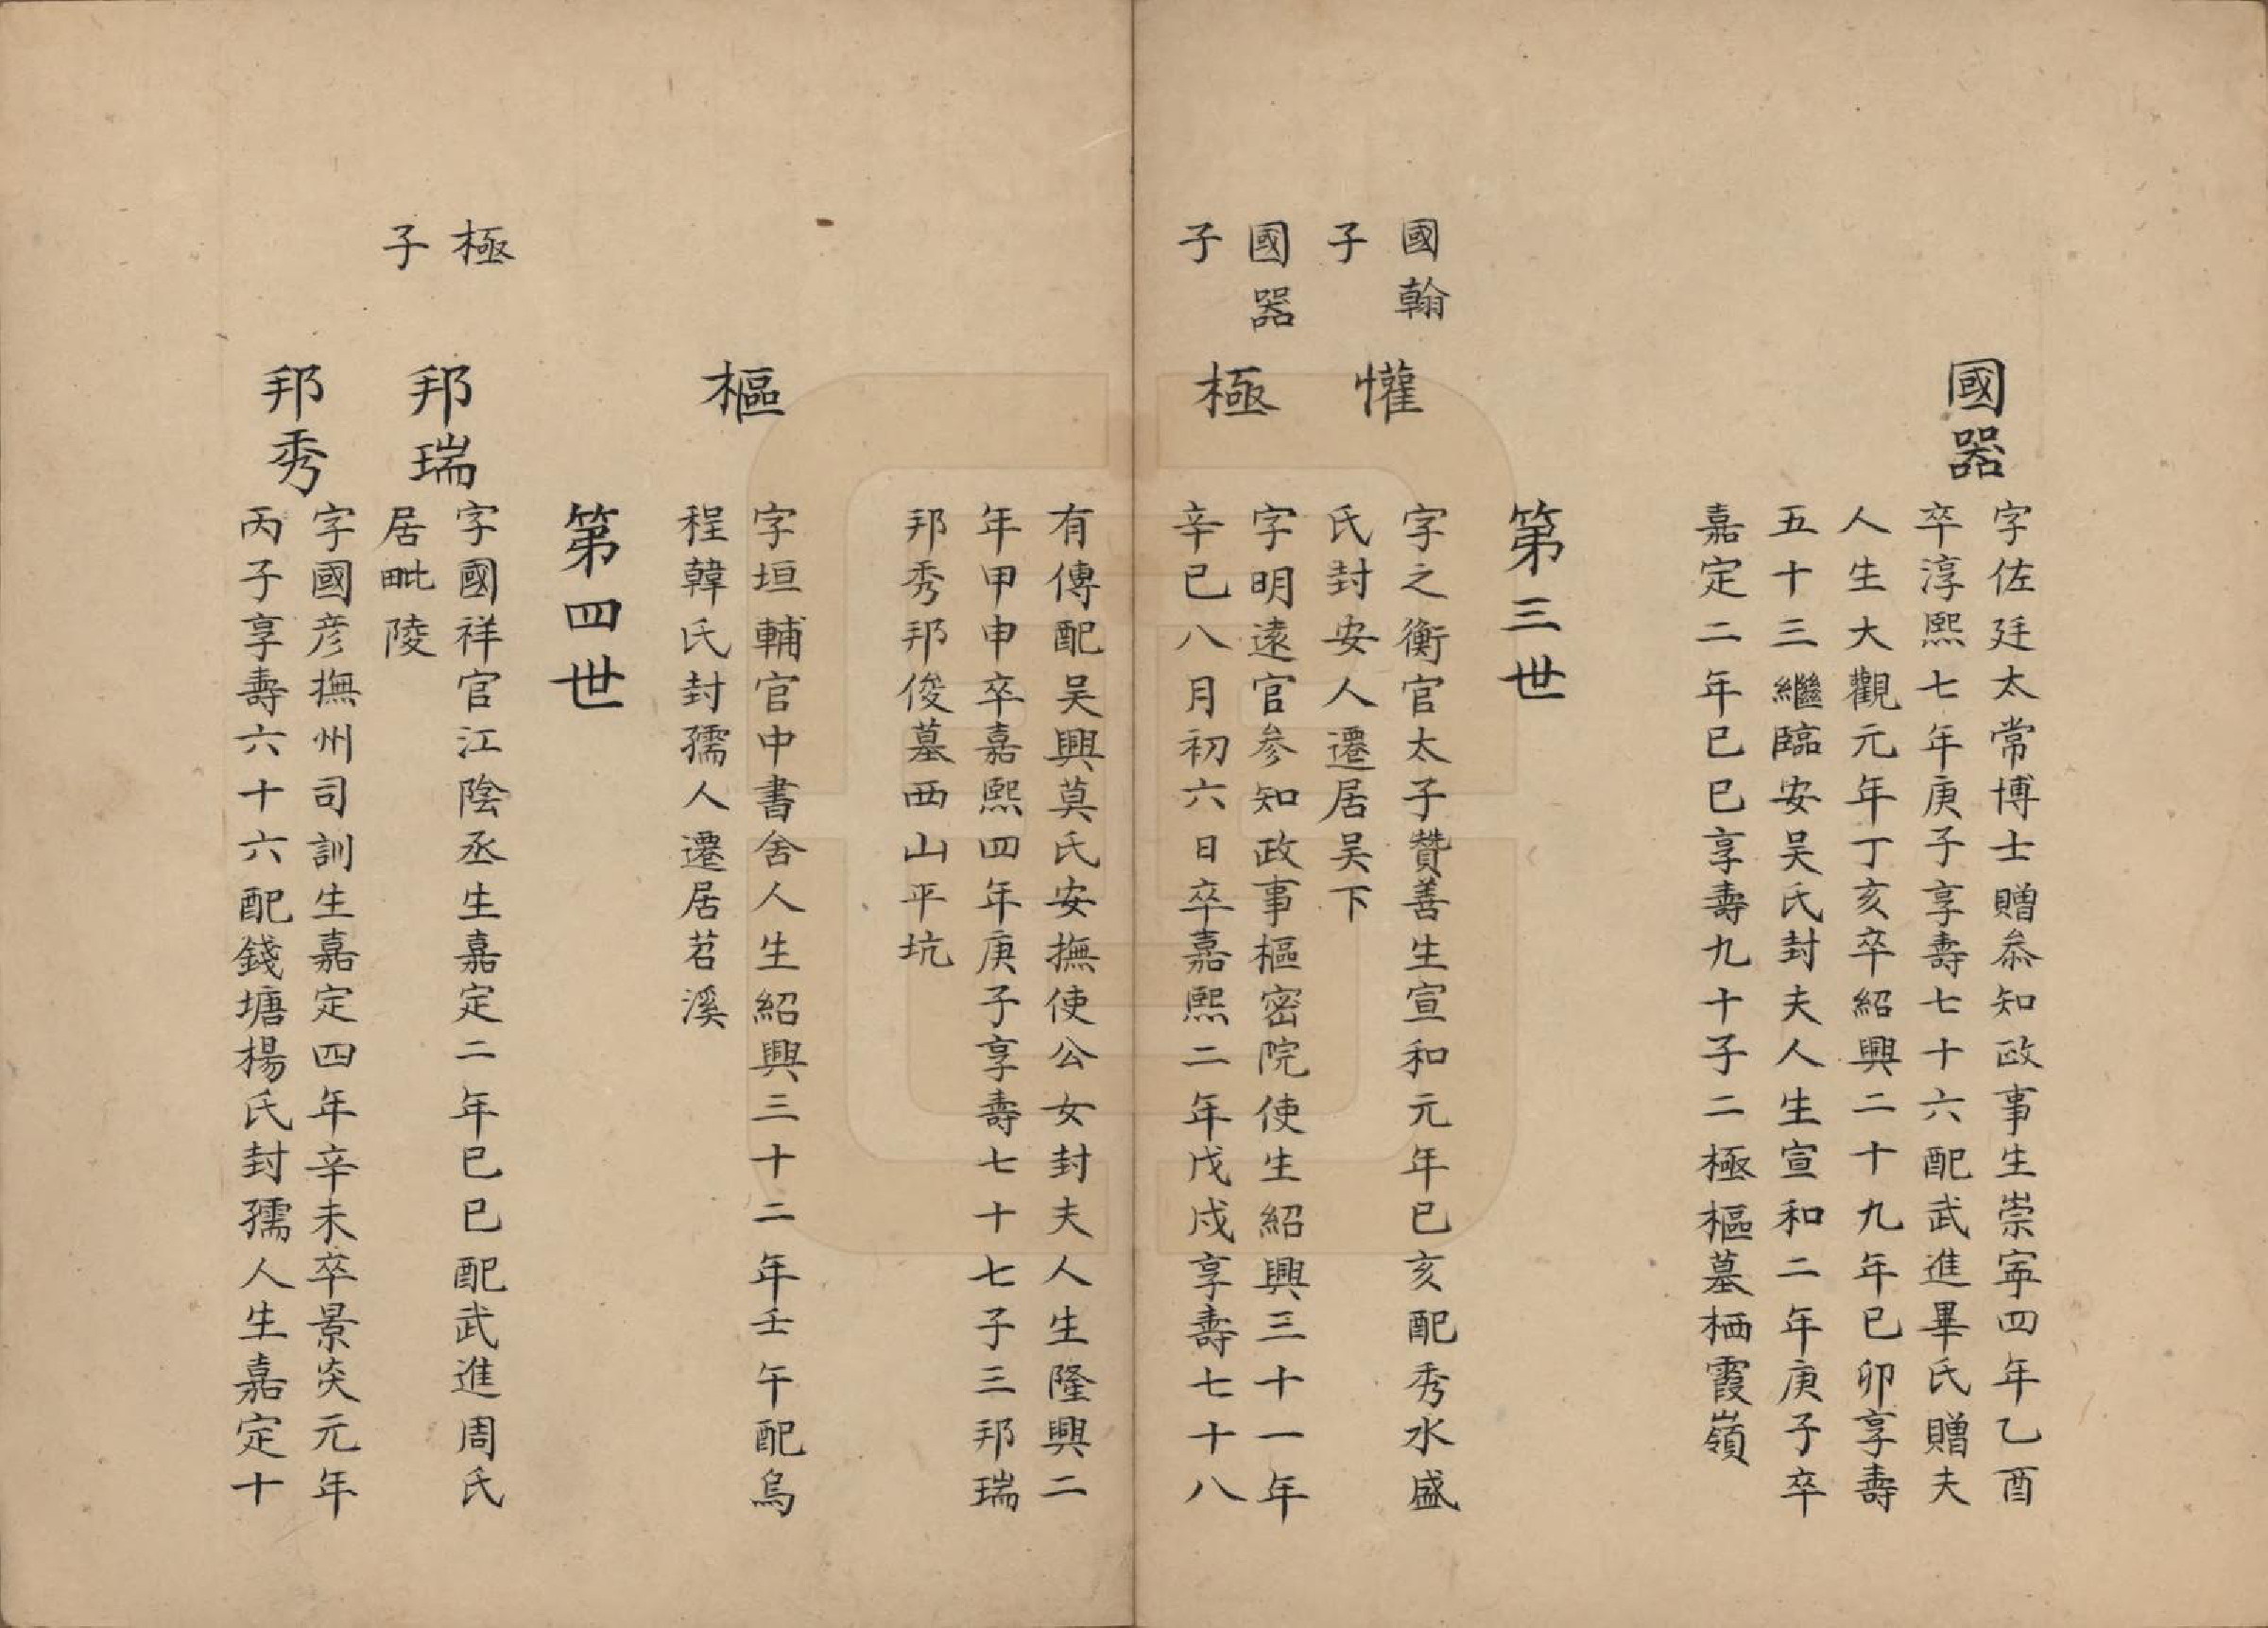 國器
字佐廷太常博士贈叅知政事生崇寕四年乙酉
卒淳熙七年庚子享壽七十六配武進畢氏贈夫
人生大觀元年丁亥卒紹興二十九年已卯享壽
五十三繼臨安吴氏封夫人生宣和二年庚子卒
嘉定二年已巳享壽九十子二極樞墓栖霞嶺
第三世
國翰
子
懽
字之衡官太子贊善生宣和元年已亥配秀水盛
氏封安人遷居吴下
國器
子
極
字明遠官參知政事樞密院使生紹興三十一年
辛巳八月初六日卒嘉熙二年戊戌享壽七十八
有傳配吴興莫氏安撫使公女封夫人生隆興二
年甲申卒嘉熙四年庚子享壽七十七子三邦瑞
邦秀邦俊墓西山平坑
樞
字垣輔官中書舍人生紹興三十二年壬午配烏
程韓氏封孺人遷居苕溪
第四世
極
子
邦瑞
字國祥官江陰丞生嘉定二年已巳配武進周氏
居毗陵
邦秀
字國彦撫州司訓生嘉定四年辛未卒景炎元年
丙子享壽六十六配錢塘楊氏封孺人生嘉定十